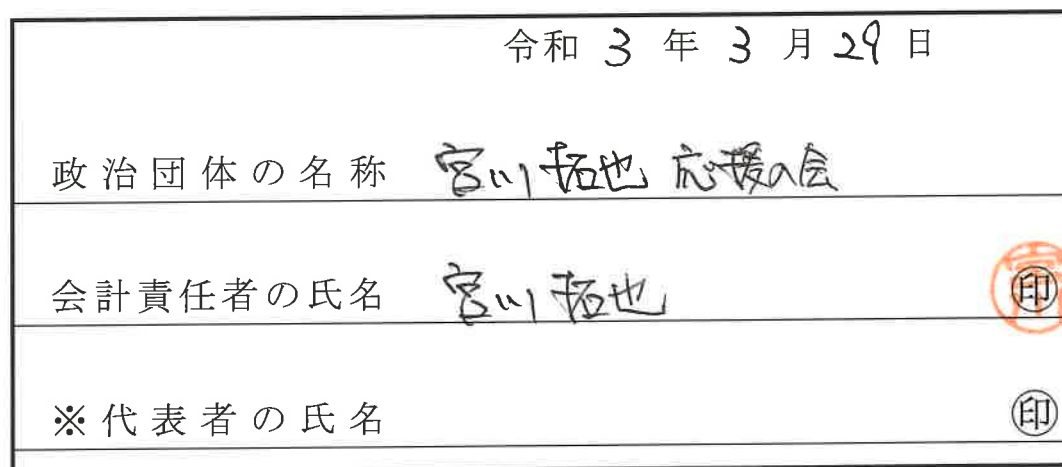 令和 3 年 3 月 29 日
政治団体の名称 宮川拓也応援の会
会計責任者の氏名 宮川拓也 ㊞
※代表者の氏名 ㊞